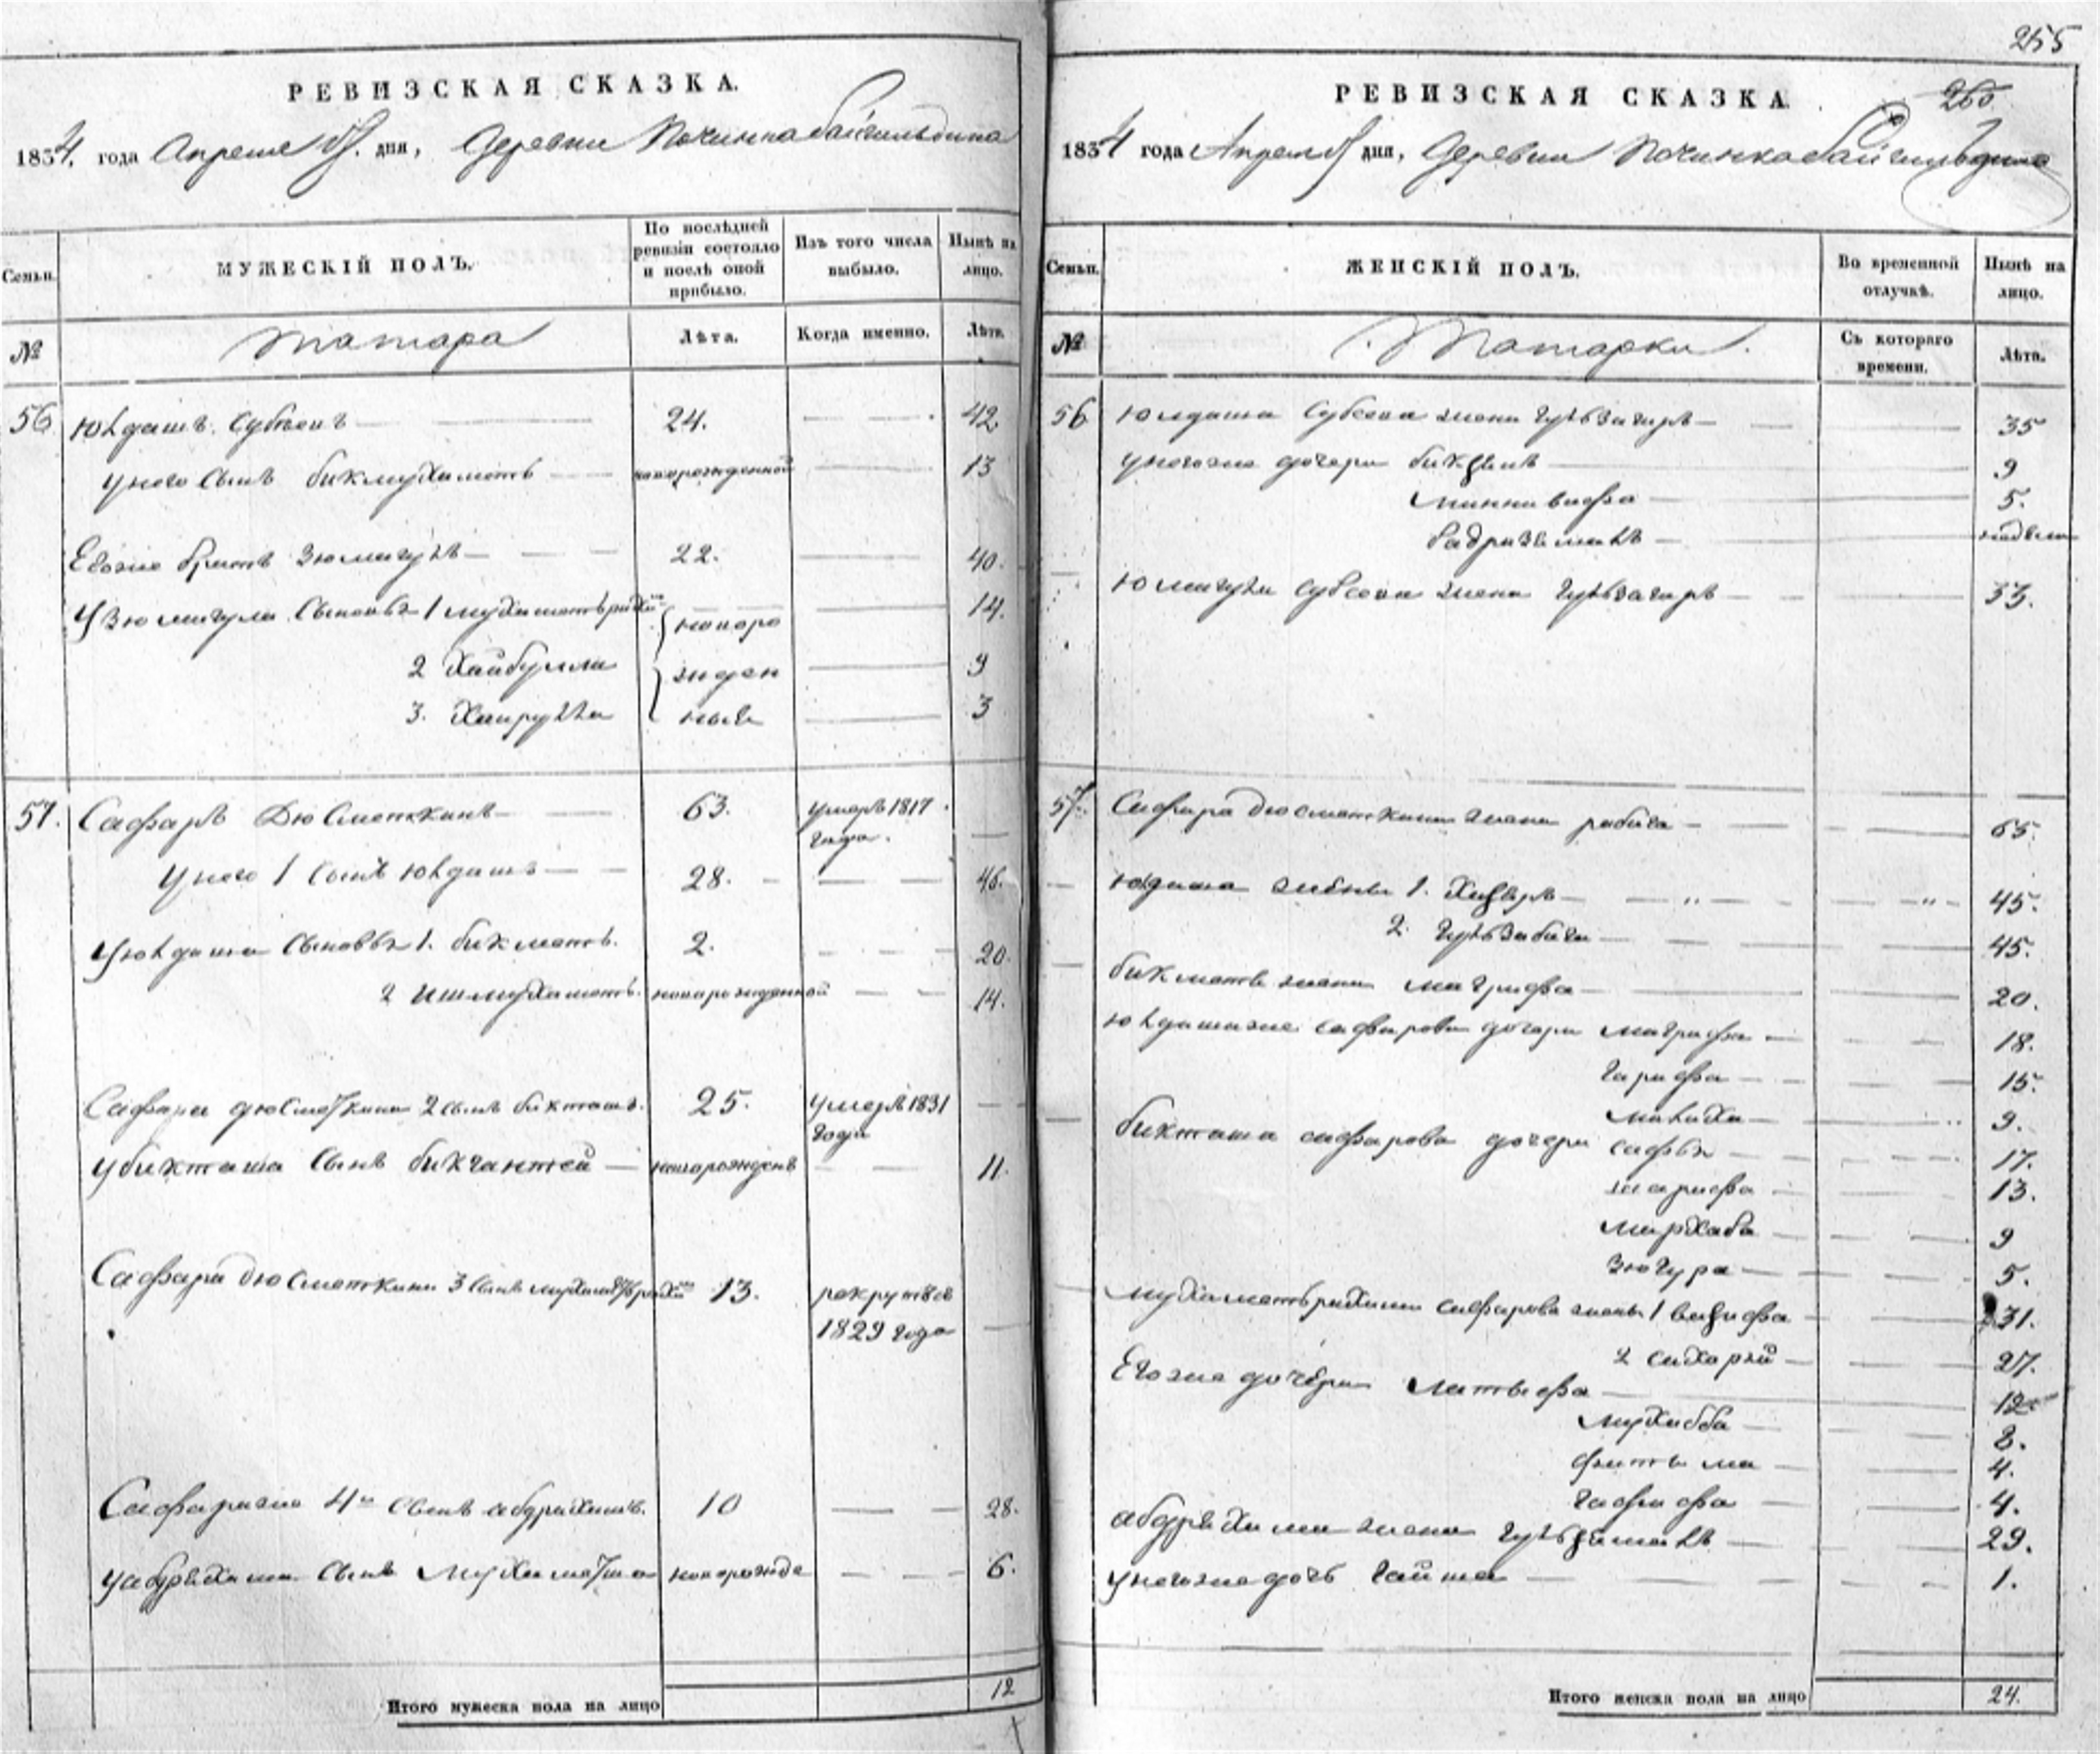 РЕВИЗСКАЯ СКАЗКА.
1834. года Апреля дня, Деревни Починка байгильдина
Семьи. МУЖЕСКІЙ ПОЛЪ. По послѣдней ревизіи состояло и послѣ оной прибыло. Изъ того числа выбыло. Нынѣ на лицо.
№ татара Лѣта. Когда именно. Лѣта.
56 Юлдашъ Субеевъ 24. 42
унего Сынъ бикмухаметъ новорожденной 13
Егоже братъ Зюмагулъ 22. 40.
У Зюмагула Сыновья 1 мухаметърахим новоро 14.
2 Хайбулла жден 9
3. Хайрулла ныя 3
57. Сафаръ Дюсметкинъ 63. умеръ 1817 года.
Унего 1 сынъ Юлдашъ 28. 46.
Уюлдаша Сыновья 1. бикметь. 2. 20.
2 Ишмухаметь. новорожденной 14.
Сафара дюсметкина 2 сынъ бикташъ. 25. умеръ 1831 года
Убикташа Сынъ бикчантей новорожденъ 11.
Сафара дюсметкина 3 сынъ мухаметърахим 13. рекрутъ въ
1829 года
Сафараже 4й Сынъ абдрахимъ. 10 28.
уабдрахима Сынъ Мухаметша новорожде 6.
Итого мужеска пола на лицо 12
255
260
РЕВИЗСКАЯ СКАЗКА
1834 года Апреля дня, Деревни Починка байгильдина
Семьи. ЖЕНСКІЙ ПОЛЪ. Во временной отлучкѣ. Нынѣ на лицо.
№ Татарки. Съ котораго времени. Лѣта.
56 Юлдаша Субеева жена гульзагиръ 35
унегоже дочери 9
Миннивафа 5.
бадризамалъ
Юмагула Субеева жена гульзагиръ 33.
57. Сафара дюсметкина жена рабига 65.
Юлдаша жены 1. 45.
2. гульзабига 45.
бикметя жена магруфа 20.
Юлдашаже сафарова дочери магрифа 18.
гарифа 15.
малиха 9.
бикташа сафарова дочери сафья 17.
шарифа 13.
мирхаба 9
зюгура 5.
мухаметърахима сафарова жены 1 вазифа 31.
2 27.
Егоже дочери латыфа 12
мухибба 8.
фатыма 4.
гафифа 4.
абдрахима жена гульземалъ 29.
унегоже дочь гайша 1.
Итого женска пола на лицо 24.